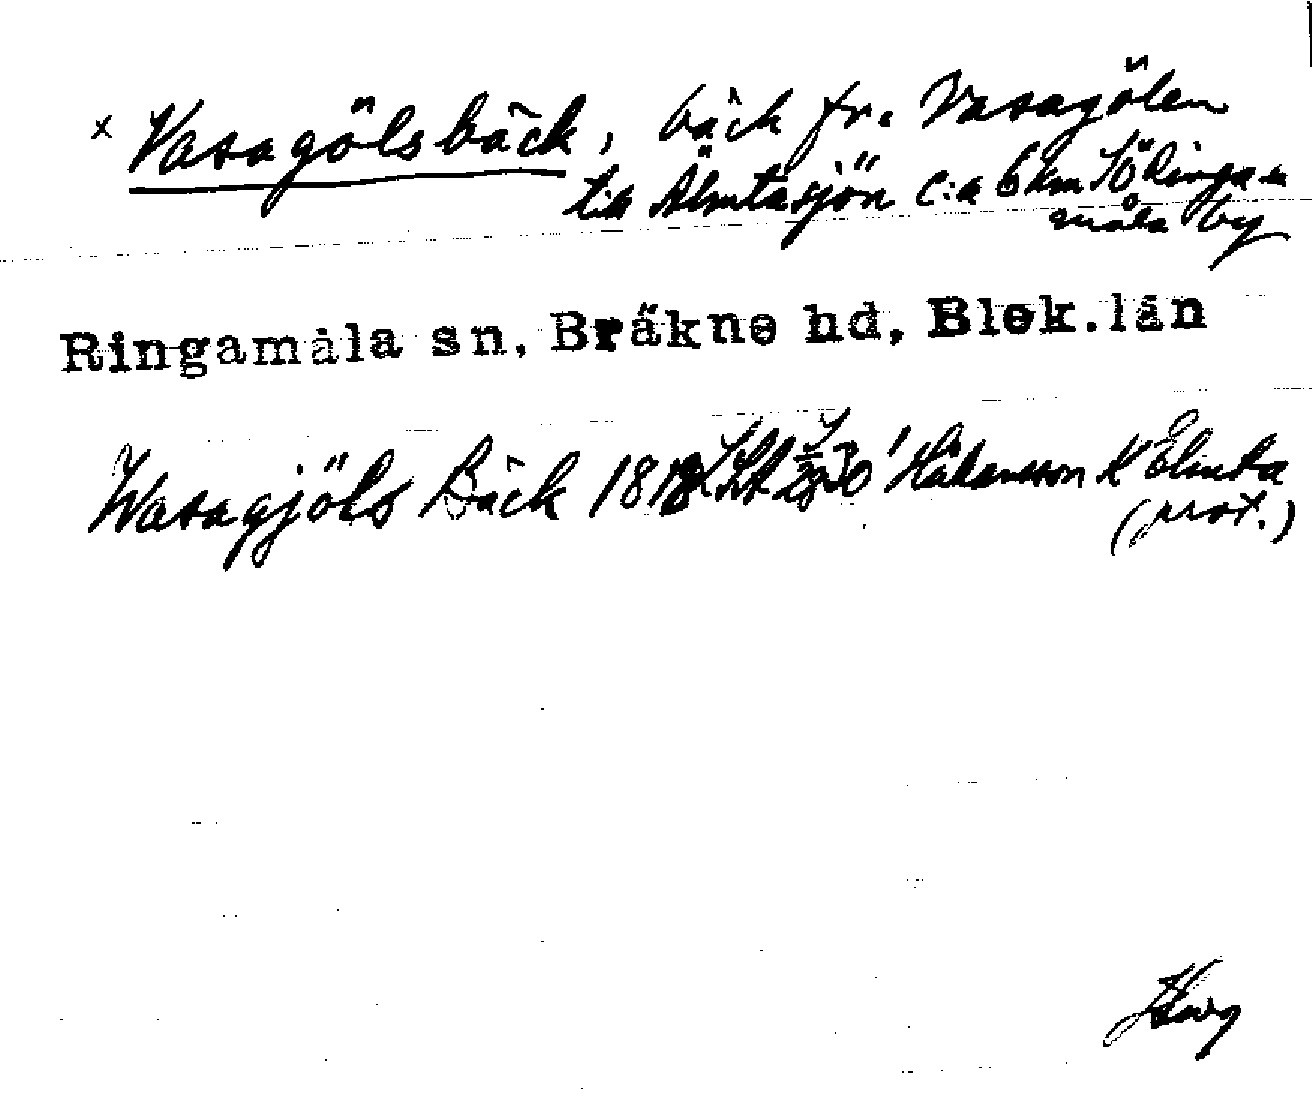 x Vasagölsbäck, bäck fr. Vasagölen
till Älmtasjön c:a 6 km SÖ Ringa-
måla by
Ringamåla sn, Bräkne hd, Blek.län
Wasagjöls Bäck 1818 Håkansson K Elmta
(prot.)